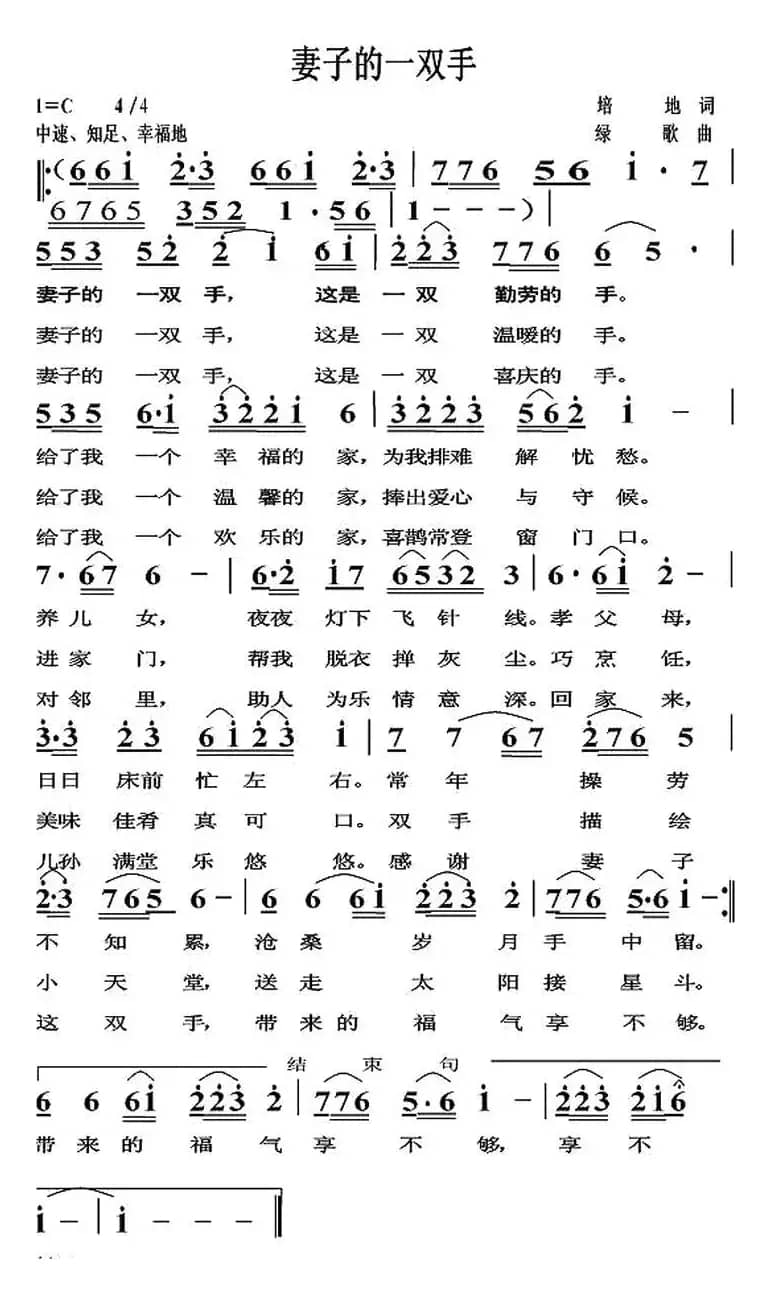 妻子的一双手
1=C 4/4 培 地 词
中速、知足、幸福地 绿 歌 曲
(6 6 1 2·3 6 6 1 2·3 | 7 7 6 5 6 1 · 7 |
6 7 6 5 3 5 2 1 · 5 6 | 1 - - - ) |
5 5 3 5 2 2 1 6 1 | 2 2 3 7 7 6 6 5 · |
妻子的 一双 手, 这是 一 双 勤劳的 手。
妻子的 一双 手, 这是 一 双 温暖的 手。
妻子的 一双 手, 这是 一 双 喜庆的 手。
5 3 5 6·1 3 2 2 1 6 | 3 2 2 3 5 6 2 1 - |
给了我 一个 幸 福的 家, 为我排难 解 忧 愁。
给了我 一个 温 馨的 家, 捧出爱心 与 守 候。
给了我 一个 欢 乐的 家, 喜鹊常登 窗 门 口。
7 · 6 7 6 - | 6·2 1 7 6 5 3 2 3 | 6 · 6 1 2 - |
养 儿 女, 夜夜 灯下 飞 针 线。孝 父 母,
进 家 门, 帮我 脱衣 掸 灰 尘。巧 烹 饪,
对 邻 里, 助人 为乐 情 意 深。回 家 来,
3·3 2 3 6 1 2 3 1 | 7 7 6 7 2 7 6 5 |
日日 床前 忙 左 右。常 年 操 劳
美味 佳肴 真 可 口。双 手 描 绘
儿孙 满堂 乐 悠 悠。感 谢 妻 子
2·3 7 6 5 6 - | 6 6 6 1 2 2 3 2 | 7 7 6 5·6 1 - :||
不 知 累, 沧 桑 岁 月 手 中 留。
小 天 堂, 送 走 太 阳 接 星 斗。
这 双 手, 带 来 的 福 气 享 不 够。
结 束 句
6 6 6 1 2 2 3 2 | 7 7 6 5·6 1 - | 2 2 3 2 1 6
带 来 的 福 气 享 不 够, 享 不
1 - | 1 - - - ||